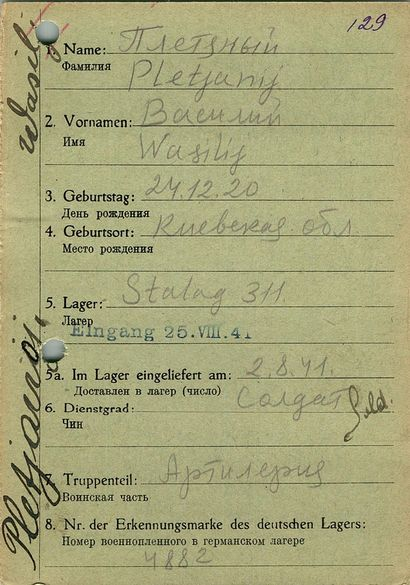 129
1. Name: Плетяный
Фамилия
Pletjanij
2. Vornamen: Василий
Имя
Wasilij
3. Geburtstag: 24.12.20
День рождения
4. Geburtsort: Киевская обл.
Место рождения
5. Lager: Stalag 311.
Лагер
Eingang 25. VIII. 41
5a. Im Lager eingeliefert am: 2.8.41.
Доставлен в лагер (число)
6. Dienstgrad: Солдат Sold.
Чин
7. Truppenteil: Артилерия
Воинская часть
8. Nr. der Erkennungsmarke des deutschen Lagers:
Номер военнопленного в германском лагере
4882
Wasilij